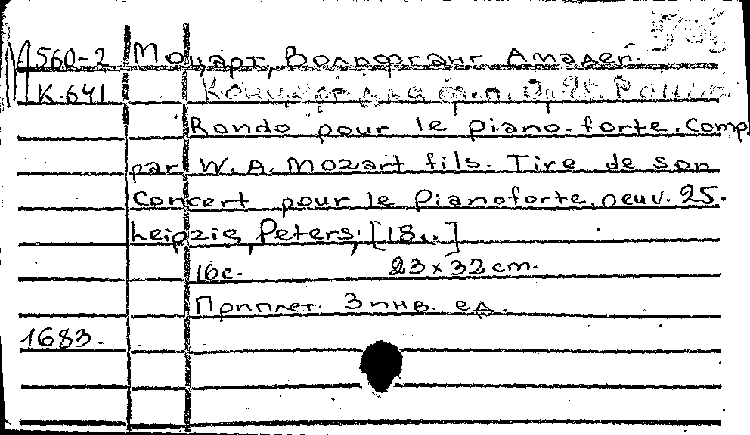 560-2 Моцарт, Вольфганг Амадей.
К.641 Концерт для ф.п. Op. 25.
Rondo pour le piano-forte. Comp
par W. A. Mozart fils. Tire de son
Concert pour le Pianoforte, oeuv. 25.
Leipzig, Peters, [18..]
16с. 23×32 cm.
Приплет. 3 инв. ед.
1683.